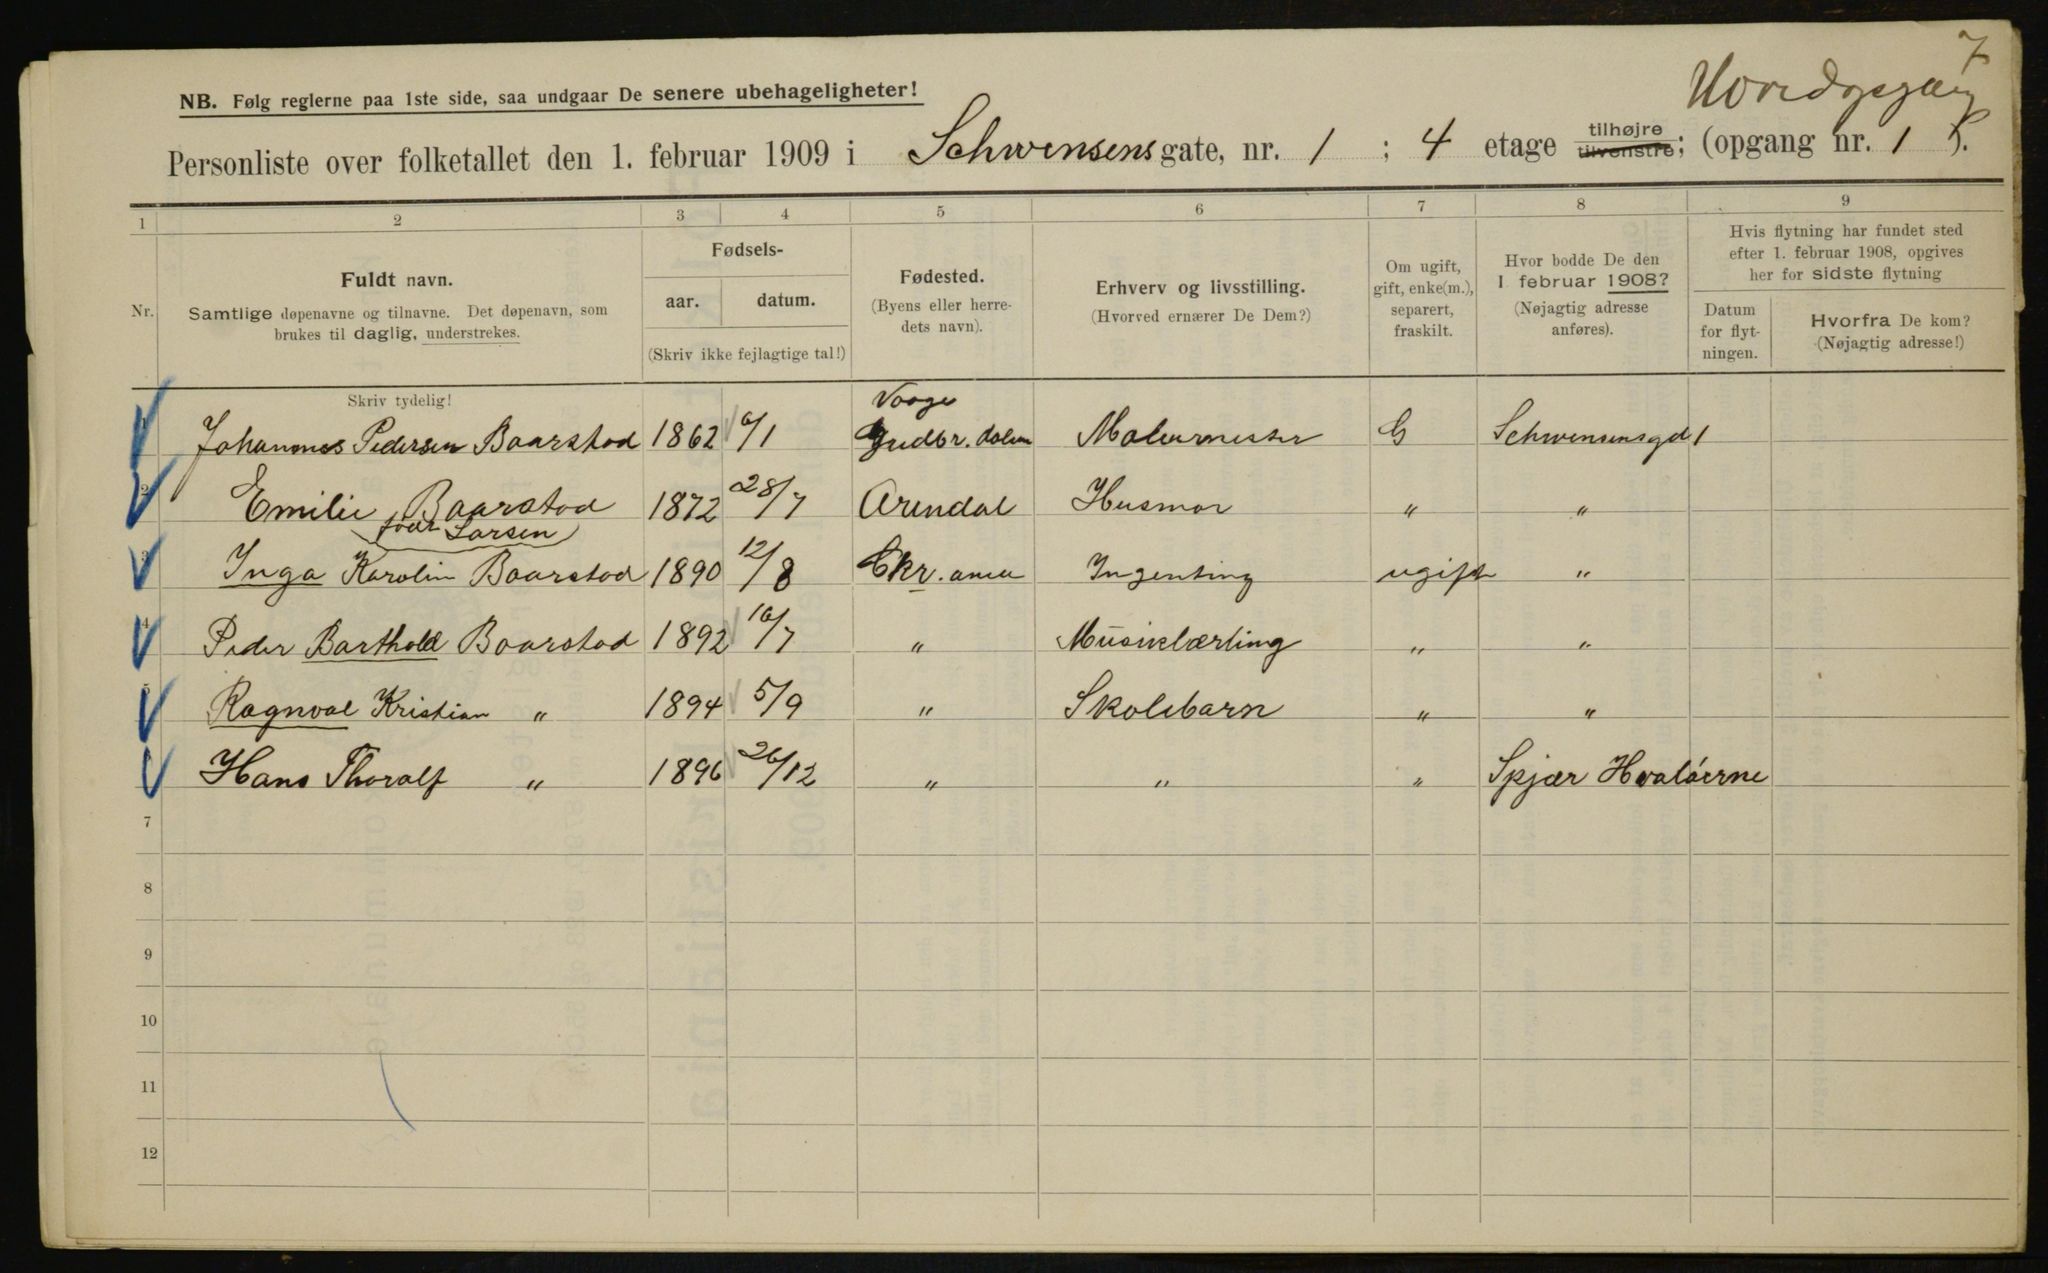 7
Hovedopgang
NB. Følg reglerne paa 1ste side, saa undgaar De senere ubehageligheter!
Personliste over folketallet den 1. februar 1909 i Schwensens gate, nr. 1 ; 4 etage tilhøjre tilvenstre; (opgang nr. 1 ).
1 2 3 4 5 6 7 8 9
Nr.
Fuldt navn.
Samtlige døpenavne og tilnavne. Det døpenavn, som
brukes til daglig, understrekes.
Fødsels-
aar. datum.
(Skriv ikke fejlagtige tal!)
Fødested.
(Byens eller herre-
dets navn).
Erhverv og livsstilling.
(Hvorved ernærer De Dem?)
Om ugift,
gift, enke(m.),
separert,
fraskilt.
Hvor bodde De den
1 februar 1908?
(Nøjagtig adresse
anføres).
Hvis flytning har fundet sted
efter 1. februar 1908, opgives
her for sidste flytning
Datum
for flyt-
ningen.
Hvorfra De kom?
(Nøjagtig adresse!)
Skriv tydelig!
Vaage
1 Johannes Pedersen Baarstad 1862 6/1 Gudbr. dalen Malermester G Schwensensgd 1
2 Emilie Baarstad 1872 28/7 Arendal Husmor " "
født Larsen
3 Inga Karolin Baarstad 1890 12/8 Chr. ania Ingenting ugift "
4 Peder Barthold Baarstad 1892 16/7 " Musiklærling " "
5 Ragnval Kristian " 1894 5/9 " Skolebarn " "
Hans Thoralf " 1896 26/12 " " " Spjær Hvaløerne
7
8
9
10
11
12